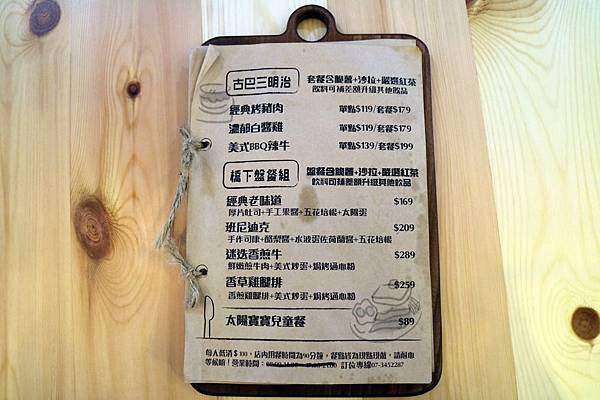 古巴三明治
套餐含脆薯+沙拉+嚴選紅茶
飲料可補差額升級其他飲品
經典烤豬肉 單點$119/套餐$179
濃郁白醬雞 單點$119/套餐$179
美式BBQ辣牛 單點$139/套餐$199
橋下盤餐組
盤餐含脆薯+沙拉+嚴選紅茶
飲料可補差額升級其他飲品
經典老味道 $169
厚片吐司+手工果醬+五花培根+太陽蛋
班尼迪克 $209
手作司康+酪梨醬+水波蛋佐荷蘭醬+五花培根
迷迭香煎牛 $289
鮮嫩煎牛肉+美式炒蛋+焗烤通心粉
香草雞腿排 $259
香煎雞腿排+美式炒蛋+焗烤通心粉
太陽寶寶兒童餐 $89
每人低消$100,店內用餐時間為90分鐘,餐點皆為現點現做,請耐心
等候唷!營業時間: 訂位專線07-3452287